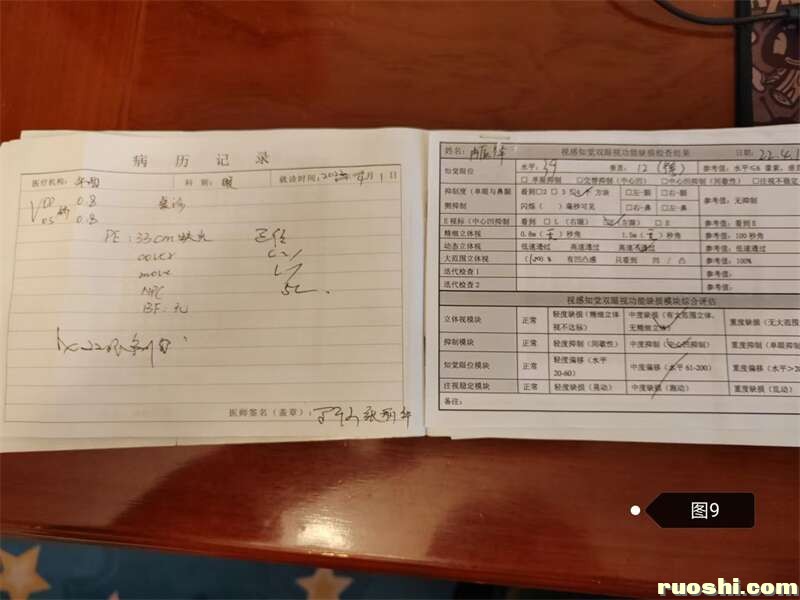 病历记录
医疗机构:
科别:眼
就诊时间:
月1日
VOD 0.8
OS 0.8
复诊
PE:33cm映光
正位
cover
(-)
move
NPC
5c
BF:无
医师签名(盖章):
姓名:
视感知觉双眼视功能缺损检查结果
日期:22.4.1
知觉眼位
水平:39
垂直:12
参考值:水平≤6 像素,
□ 单眼抑制 □ 交替抑制(中心凹) □ 中心凹抑制(间歇性) □ 注视不稳定
抑制度(单眼与鼻侧颞侧抑制
看到□2 □3 方块
□左-颞 □右-颞
闪烁( )毫秒可见
□右-鼻 □左-鼻
参考值:无抑制
E视标(中心凹抑制
看到 □ L(右眼)
(左眼) □ E
参考值:看到E
精细立体视
0.8m(无)秒角
1.5m(无)秒角
参考值:100秒角
动态立体视
低速通过 高速通过 高速未通过
参考值:低速通过
大范围立体视
(100)% 有凹凸感 只看到 凹 / 凸
参考值:100%
迭代检查1
参考值:
迭代检查2
参考值:
视感知觉双眼视功能缺损模块综合评估
立体视模块
正常
轻度缺损(精细立体视不达标)
中度缺损(有大范围立体,无精细立体)
重度缺损(无大范围
抑制模块
正常
轻度抑制(间歇性)
中度抑制(中心凹抑制)
重度抑制(单眼抑制
知觉眼位模块
正常
轻度偏移(水平20-60)
中度偏移(水平61-200)
重度偏移(水平>20
注视稳定模块
正常
轻度缺损(晃动)
中度缺损(拖动)
重度缺损(乱动)
备注:
图9
ruoshi.com